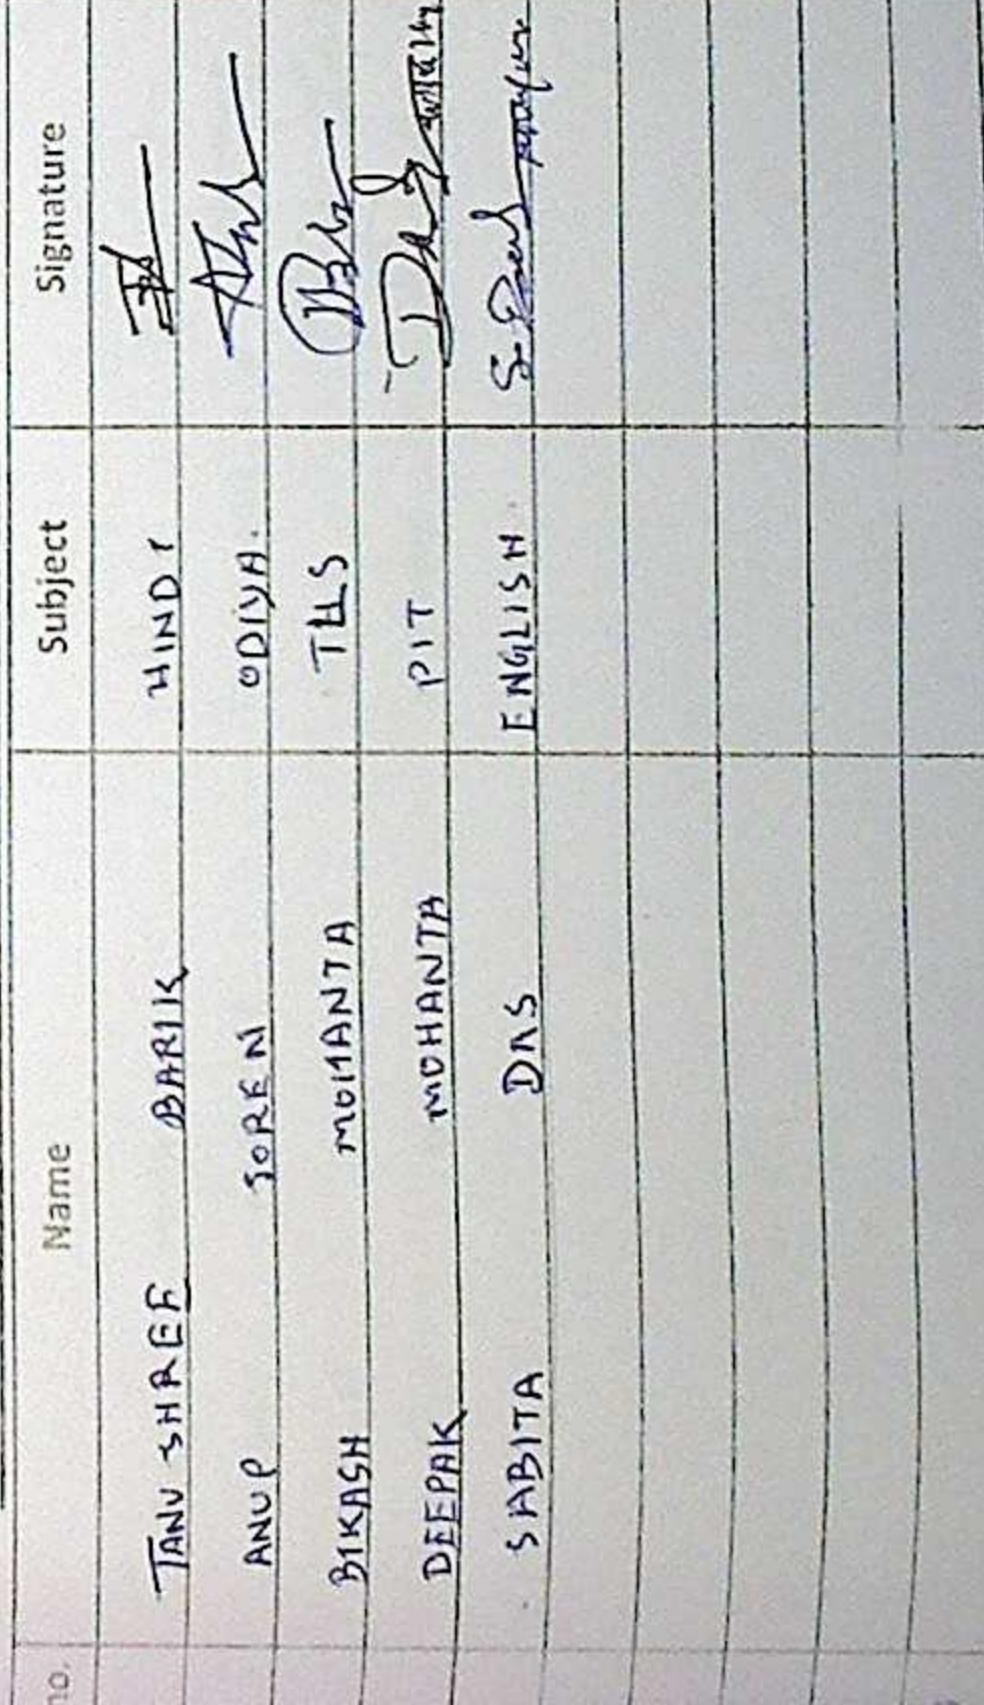 no. Name Subject Signature
TANUSHREE BARIK HINDI
ANUP SOREN ODIYA.
BIKASH MOHANTA TLS
DEEPAK MOHANTA PIT
SABITA DAS ENGLISH